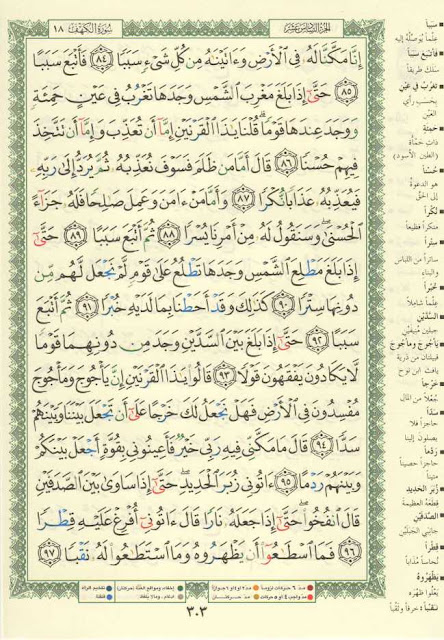 سُورَةُ الكَهْفِ ١٨
الجُزْءُ السَّادِسَ عَشَرَ
إِنَّا مَكَّنَّا لَهُۥ فِى ٱلْأَرْضِ وَءَاتَيْنَٰهُ مِن كُلِّ شَىْءٍ سَبَبًا ٨٤ فَأَتْبَعَ سَبَبًا
٨٥ حَتَّىٰٓ إِذَا بَلَغَ مَغْرِبَ ٱلشَّمْسِ وَجَدَهَا تَغْرُبُ فِى عَيْنٍ حَمِئَةٍ
وَوَجَدَ عِندَهَا قَوْمًا ۗ قُلْنَا يَٰذَا ٱلْقَرْنَيْنِ إِمَّآ أَن تُعَذِّبَ وَإِمَّآ أَن تَتَّخِذَ
فِيهِمْ حُسْنًا ٨٦ قَالَ أَمَّا مَن ظَلَمَ فَسَوْفَ نُعَذِّبُهُۥ ثُمَّ يُرَدُّ إِلَىٰ رَبِّهِۦ
فَيُعَذِّبُهُۥ عَذَابًا نُّكْرًا ٨٧ وَأَمَّا مَنْ ءَامَنَ وَعَمِلَ صَٰلِحًا فَلَهُۥ جَزَآءً
ٱلْحُسْنَىٰ ۖ وَسَنَقُولُ لَهُۥ مِنْ أَمْرِنَا يُسْرًا ٨٨ ثُمَّ أَتْبَعَ سَبَبًا ٨٩ حَتَّىٰٓ
إِذَا بَلَغَ مَطْلِعَ ٱلشَّمْسِ وَجَدَهَا تَطْلُعُ عَلَىٰ قَوْمٍ لَّمْ نَجْعَل لَّهُم مِّن
دُونِهَا سِتْرًا ٩٠ كَذَٰلِكَ وَقَدْ أَحَطْنَا بِمَا لَدَيْهِ خُبْرًا ٩١ ثُمَّ أَتْبَعَ
سَبَبًا ٩٢ حَتَّىٰٓ إِذَا بَلَغَ بَيْنَ ٱلسَّدَّيْنِ وَجَدَ مِن دُونِهِمَا قَوْمًا
لَّا يَكَادُونَ يَفْقَهُونَ قَوْلًا ٩٣ قَالُوا۟ يَٰذَا ٱلْقَرْنَيْنِ إِنَّ يَأْجُوجَ وَمَأْجُوجَ
مُفْسِدُونَ فِى ٱلْأَرْضِ فَهَلْ نَجْعَلُ لَكَ خَرْجًا عَلَىٰٓ أَن تَجْعَلَ بَيْنَنَا وَبَيْنَهُمْ
سَدًّا ٩٤ قَالَ مَا مَكَّنِّى فِيهِ رَبِّى خَيْرٌ فَأَعِينُونِى بِقُوَّةٍ أَجْعَلْ بَيْنَكُمْ
وَبَيْنَهُمْ رَدْمًا ٩٥ ءَاتُونِى زُبَرَ ٱلْحَدِيدِ ۖ حَتَّىٰٓ إِذَا سَاوَىٰ بَيْنَ ٱلصَّدَفَيْنِ
قَالَ ٱنفُخُوا۟ ۖ حَتَّىٰٓ إِذَا جَعَلَهُۥ نَارًا قَالَ ءَاتُونِىٓ أُفْرِغْ عَلَيْهِ قِطْرًا
٩٦ فَمَا ٱسْطَٰعُوٓا۟ أَن يَظْهَرُوهُ وَمَا ٱسْتَطَٰعُوا۟ لَهُۥ نَقْبًا ٩٧
سَبَبًا
عِلْمًا يُوصِلُهُ إليه
فَأَتْبَعَ سَبَبًا
سلك طريقًا
تَغْرُبُ فِي عَيْنٍ
بحسب رأي
العَيْن
حَمِئَةٍ
ذات حَمْأة
(الطين الأسود)
حُسْنًا
هو الدعوة
إلى الحق
نُكْرًا
منكرًا فظيعًا
سِتْرًا
ساترًا من اللباس
والبناء
خُبْرًا
علمًا شاملًا
السَّدَّيْنِ
جبلين مُنيفين
يَأْجُوجَ وَمَأْجُوجَ
قبيلتان من ذرية
يافث ابن نوح
خَرْجًا
جُعْلًا من المال
سَدًّا
حاجزًا فلا
يصلون إلينا
رَدْمًا
حاجزًا حصينًا
متينًا
زُبَرَ الحَدِيدِ
قِطَعَهُ العظيمة
الصَّدَفَيْنِ
جانبي الجبلين
قِطْرًا
نُحاسًا مُذابًا
يَظْهَرُوهُ
يعلوا ظهره
نَقْبًا: خرقًا وثَقْبًا
٣٠٣